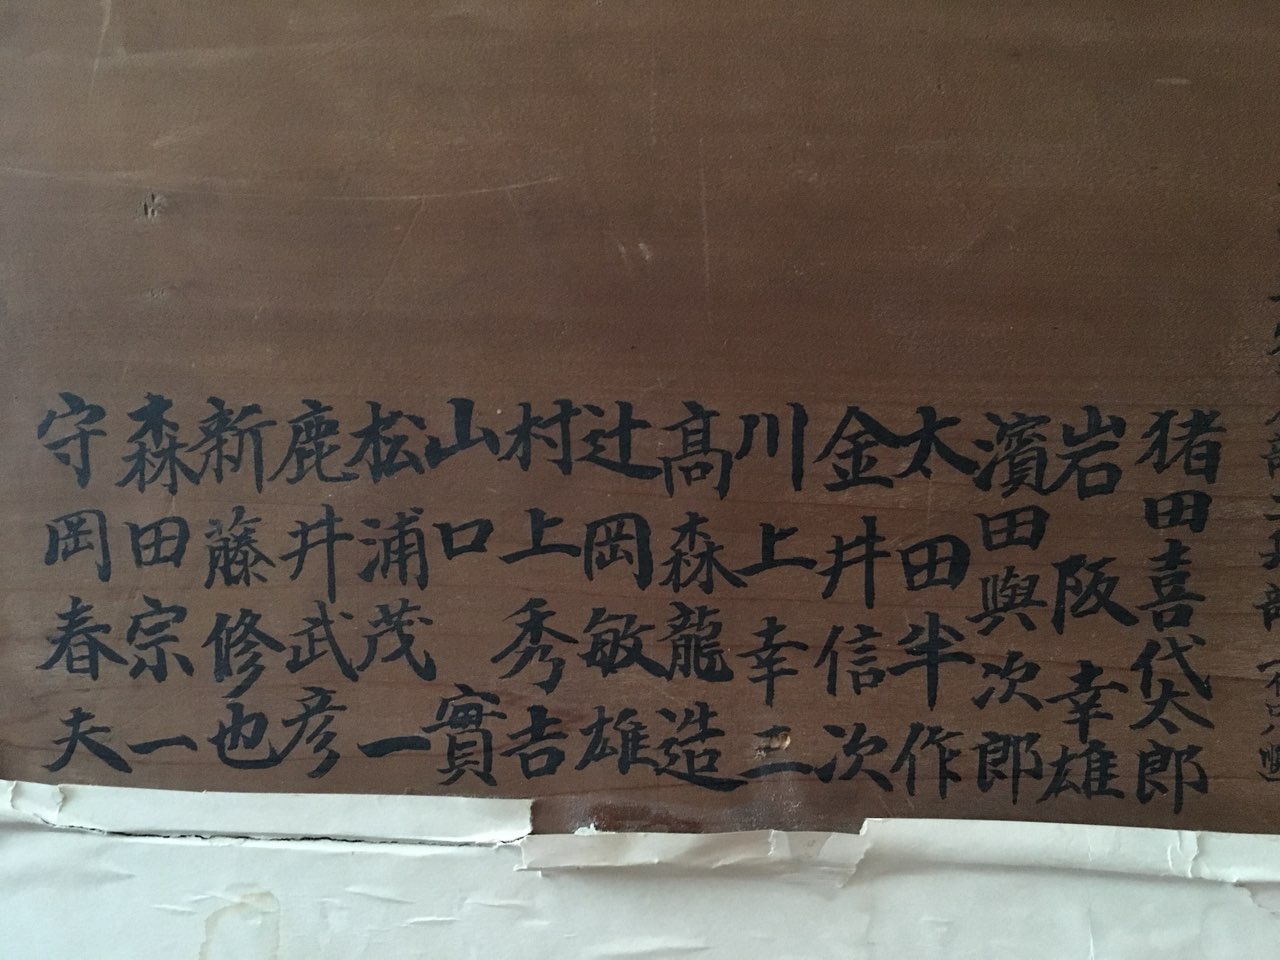 猪田喜代太郎
岩阪幸雄
濱田與次郎
太田半作
金井信次
川上幸二
髙森龍造
辻岡敏雄
村上秀吉
山口實
松浦茂一
鹿井武彦
新藤修也
森田宗一
守岡春夫